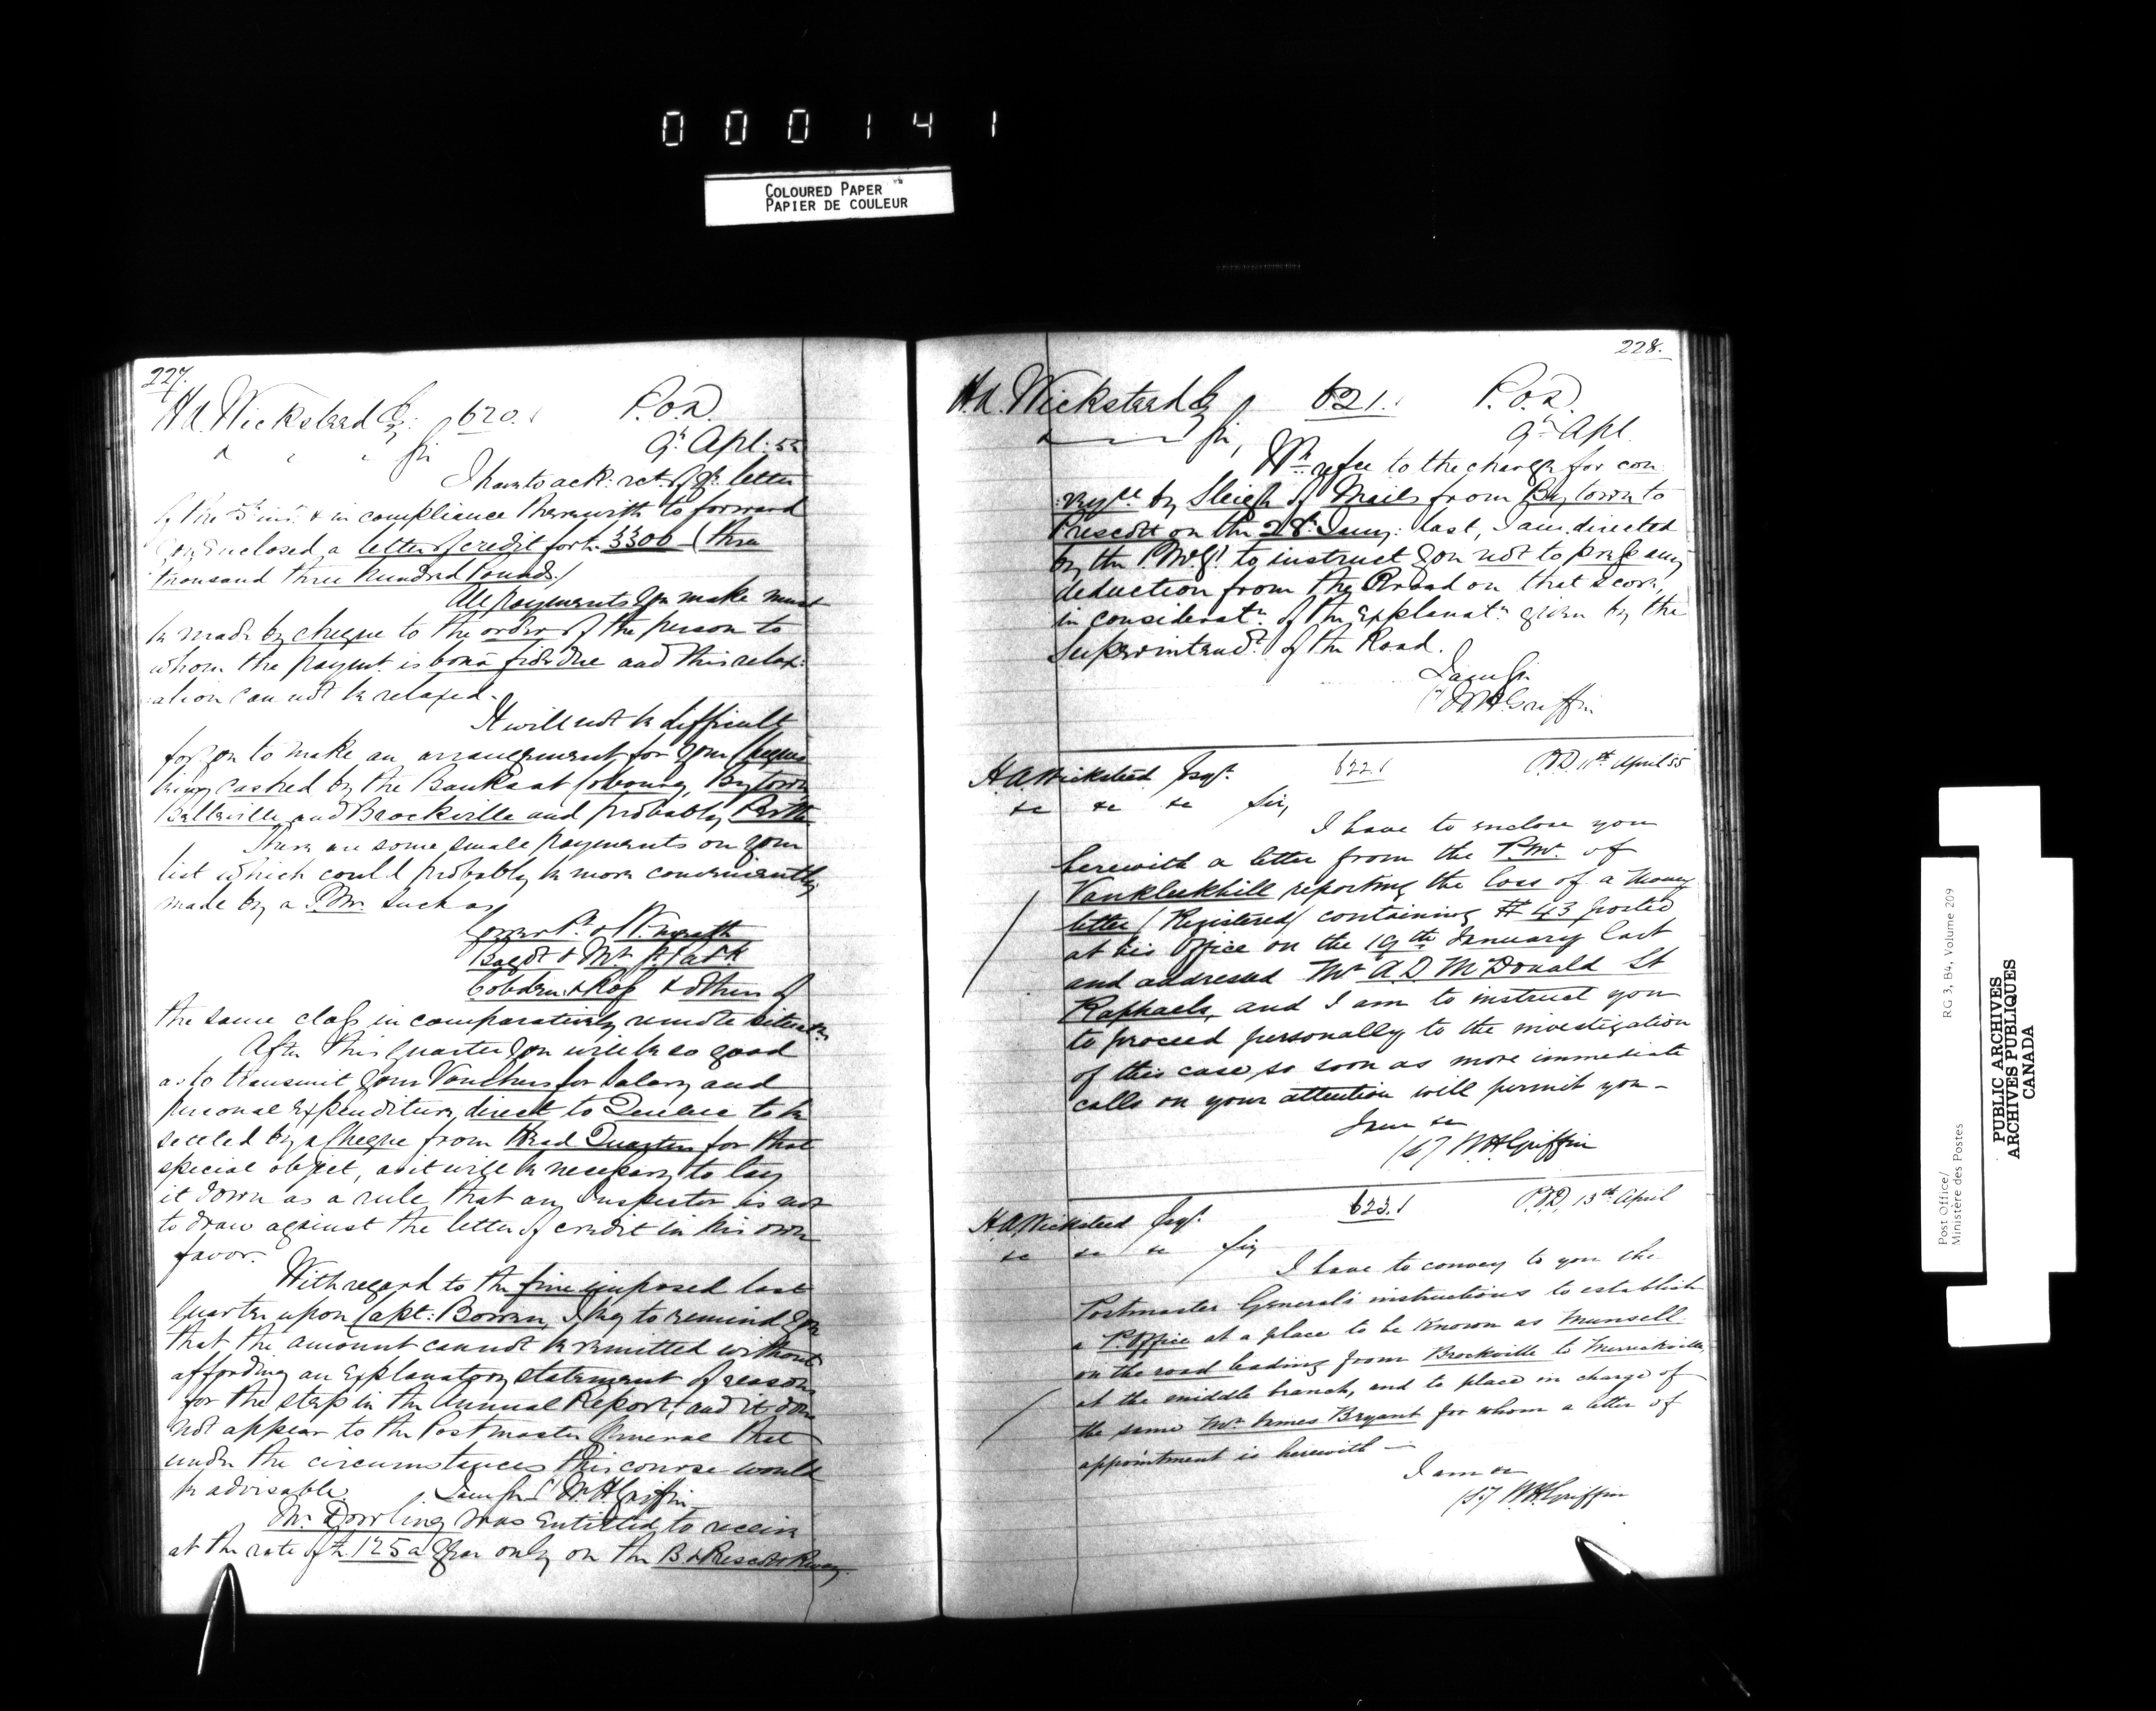 0 0 0 1 4 1
COLOURED PAPER
PAPIER DE COULEUR
227.
H.A. Wicksteed Esq: 620.
P.O.D.
9th Apl. 55
Sir
I have to ack: rct. of yr. letter
of the 5th inst. & in compliance therewith to forward
you enclosed a letter of credit for £3300 (three
thousand three hundred Pounds.)
All payments you make must
be made by cheque to the order of the person to
whom the payent. is bonâ fide due and this relax:
ation can not be relaxed.
It will not be difficult
for you to make an arrangement for your Cheques
being cashed by the Banks at Cobourg, Bytown,
Belleville and Brockville and probably Perth.
There are some small payments on your
list which could probably be more conveniently
made by a P.Mr. such as
Bagot & Mt. St. Patk
Cobden & Ross & others of
the same class in comparatively remote situatns.
After this Quarter you will be so good
as to transmit your Vouchers for Salary and
personal Expenditure, direct to Quebec to be
settled by a Cheque from Head Quarters for that
special object, as it will be necessary to lay
it down as a rule that any Inspector is not
to draw against the letter of credit in his own
favor.
With regard to the fine imposed last
Quarter upon Capt: Bowen, I beg to remind you
that the amount cannot be remitted without
affording an Explanatory statement of reasons
for the step in the Annual Report, and it does
not appear to the Postmaster General that
under the circumstances this course would
be advisable.
I am Sir (s) W.H. Griffin
Mr. Dowling was entitled to receive
at the rate of £125 a year only on the B. & Prescott R.way.
228.
H.A. Wicksteed Esq 621.
P.O.D.
9th Apl.
Sir,
Wh refce to the charge for con
:veyce by Sleigh of Mails from Bytown to
Prescott on the 28th Jany: last, I am directed
by the P.M.Gl. to instruct you not to make any
deduction from the Road on that score,
in considerat.n of the Explanat.n given by the
Superintendt. of the Road.
I am Sir
(s) W.H. Griffin
H.A. Wicksteed Esqr. 622.
P.O.D. 11th April 55
&c &c &c Sir,
I have to enclose you
herewith a letter from the P.Mr. of
Vankleekhill reporting the loss of a Money
letter (Registered) containing $43 posted
at his Office on the 19th January last
and addressed Mr A. D. McDonald St
Raphaels, and I am to instruct you
to proceed personally to the investigation
of this case, so soon as more immediate
calls on your attention will permit you –
I am &c
(s) W.H. Griffin
H.A. Wicksteed Esqr. 623.
P.O.D. 13th April
&c &c &c Sir
I have to convey to you the
Postmaster General's instructions to establish
a P. Office at a place to be known as Munsell.
on the road leading from Brockville to Merrickville,
at the middle branch, and to place in charge of
the same Mr. James Bryant for whom a letter of
appointment is herewith –
I am &c
(s) W.H. Griffin
Post Office/
Ministère des Postes
RG 3, B4, Volume 209
PUBLIC ARCHIVES
ARCHIVES PUBLIQUES
CANADA